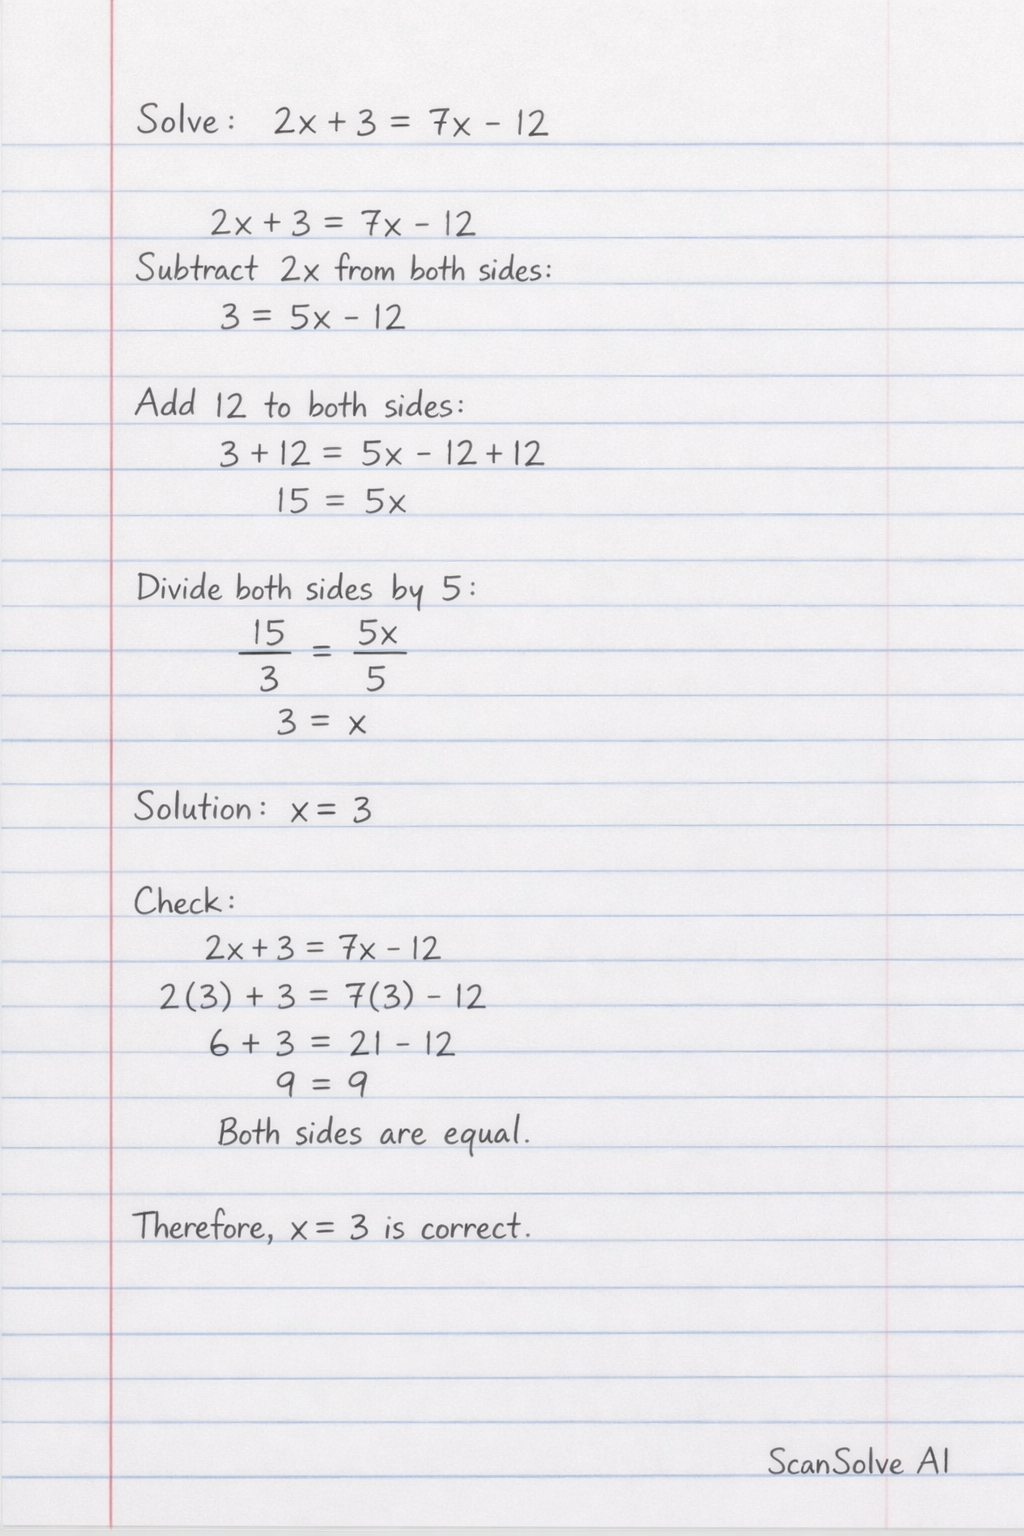 Solve: 2x + 3 = 7x - 12
2x + 3 = 7x - 12
Subtract 2x from both sides:
3 = 5x - 12
Add 12 to both sides:
3 + 12 = 5x - 12 + 12
15 = 5x
Divide both sides by 5:
15/3 = 5x/5
3 = x
Solution: x = 3
Check:
2x + 3 = 7x - 12
2(3) + 3 = 7(3) - 12
6 + 3 = 21 - 12
9 = 9
Both sides are equal.
Therefore, x = 3 is correct.
ScanSolve AI